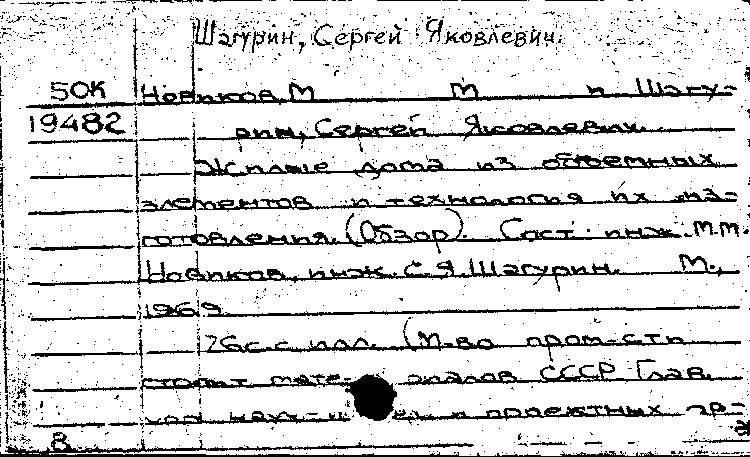 Шагурин, Сергей Яковлевич.
50К Новиков, М М и Шагу-
19482 рин, Сергей Яковлевич.
Жилые дома из объемных
элементов и технология их из-
готовления. (Обзор). Сост. инж. М.М.
Новиков, инж. С.Я. Шагурин. М.,
1969.
76с. с илл. (М-во пром-сти
строит. мате- риалов СССР. Глав.
упр. науч.-и и проектных ор-
8